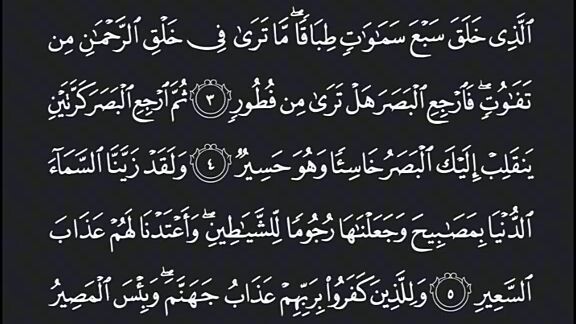 ٱلَّذِى خَلَقَ سَبْعَ سَمَٰوَٰتٍ طِبَاقًا ۖ مَّا تَرَىٰ فِى خَلْقِ ٱلرَّحْمَٰنِ مِن
تَفَٰوُتٍ ۖ فَٱرْجِعِ ٱلْبَصَرَ هَلْ تَرَىٰ مِن فُطُورٍ ٣ ثُمَّ ٱرْجِعِ ٱلْبَصَرَ كَرَّتَيْنِ
يَنقَلِبْ إِلَيْكَ ٱلْبَصَرُ خَاسِئًا وَهُوَ حَسِيرٌ ٤ وَلَقَدْ زَيَّنَّا ٱلسَّمَآءَ
ٱلدُّنْيَا بِمَصَٰبِيحَ وَجَعَلْنَٰهَا رُجُومًا لِّلشَّيَٰطِينِ ۖ وَأَعْتَدْنَا لَهُمْ عَذَابَ
ٱلسَّعِيرِ ٥ وَلِلَّذِينَ كَفَرُوا۟ بِرَبِّهِمْ عَذَابُ جَهَنَّمَ ۖ وَبِئْسَ ٱلْمَصِيرُ